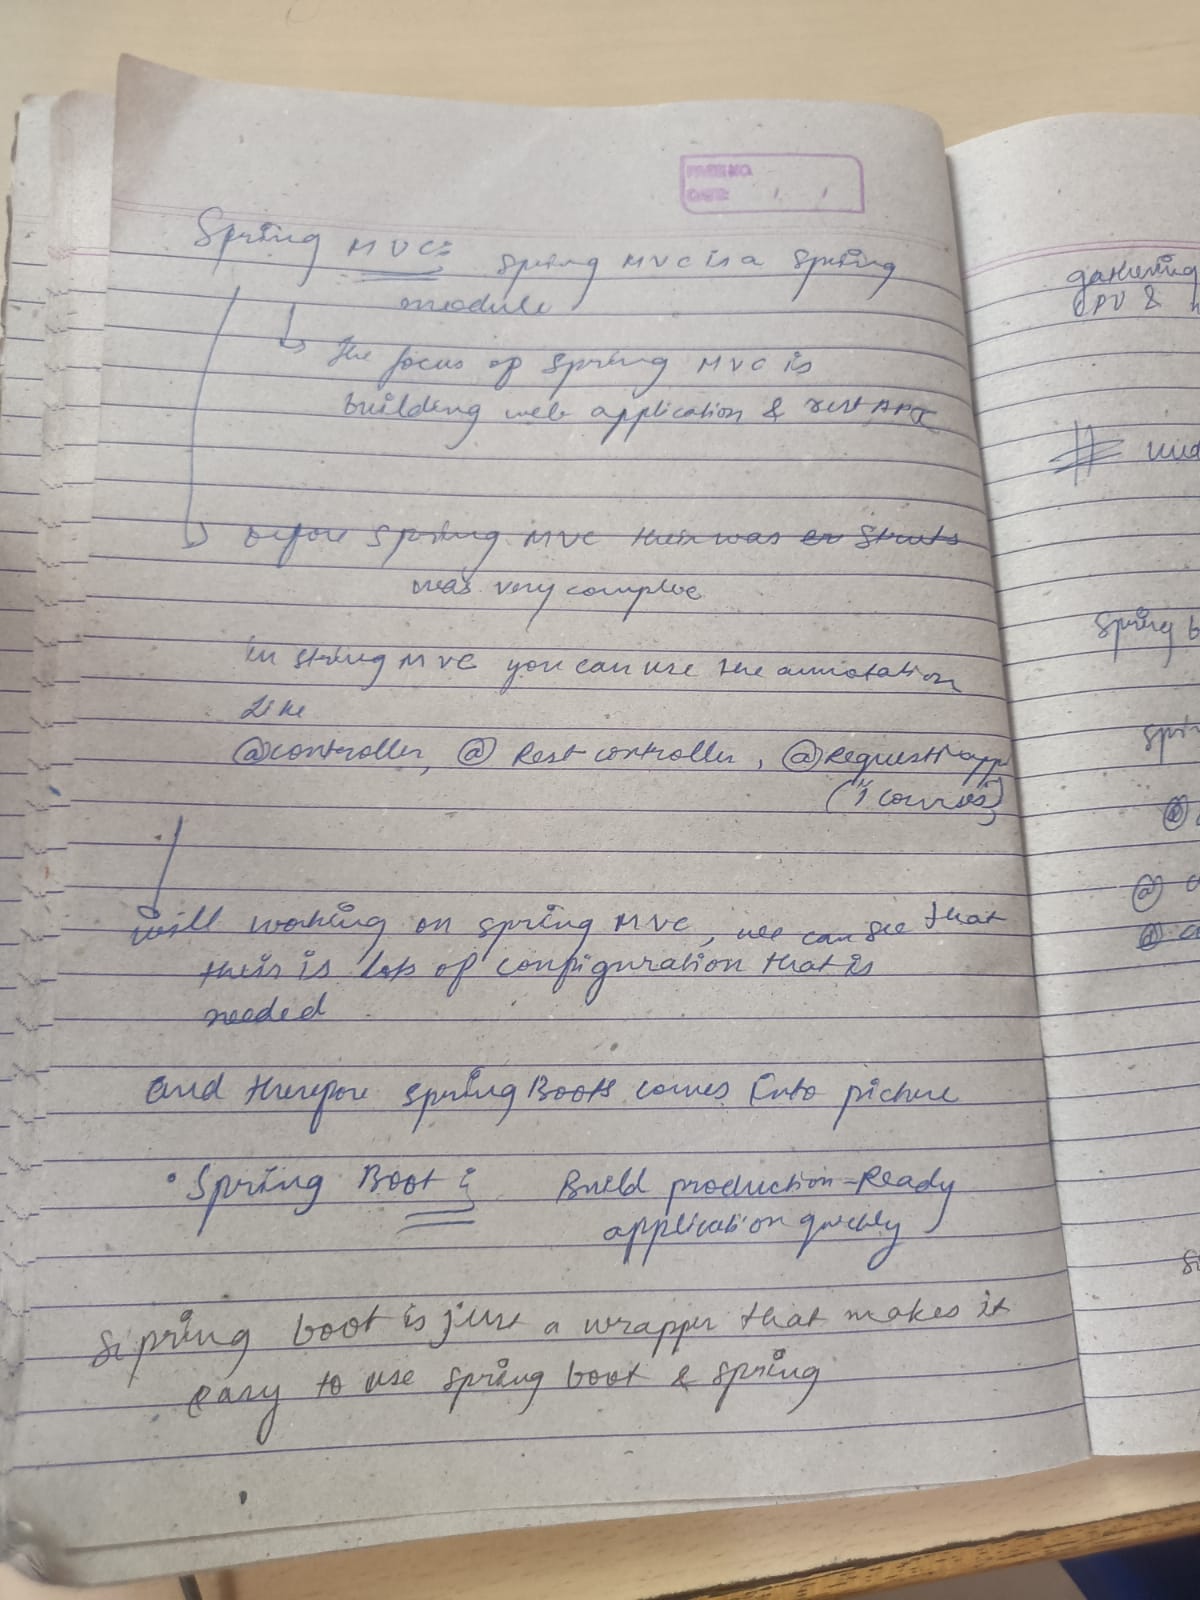 PAGE NO.
DATE: / /
Spring MVC: Spring MVC is a Spring
module
→ The focus of Spring MVC is
building web application & rest API
→ Before Spring MVC their was Struts
was very complex
In string MVC you can use the annotation
Like
@controller, @ Rest controller, @Request
("/courses")
will working on spring MVC, we can see that
their is lots of configuration that is
needed
and therefore spring Boots comes Into picture
• Spring Boot : Build production-Ready
application quickly
Spring boot is just a wrapper that makes it
easy to use spring boot & spring
gathering
CPU &
#
Spring b
spri
@
@
@